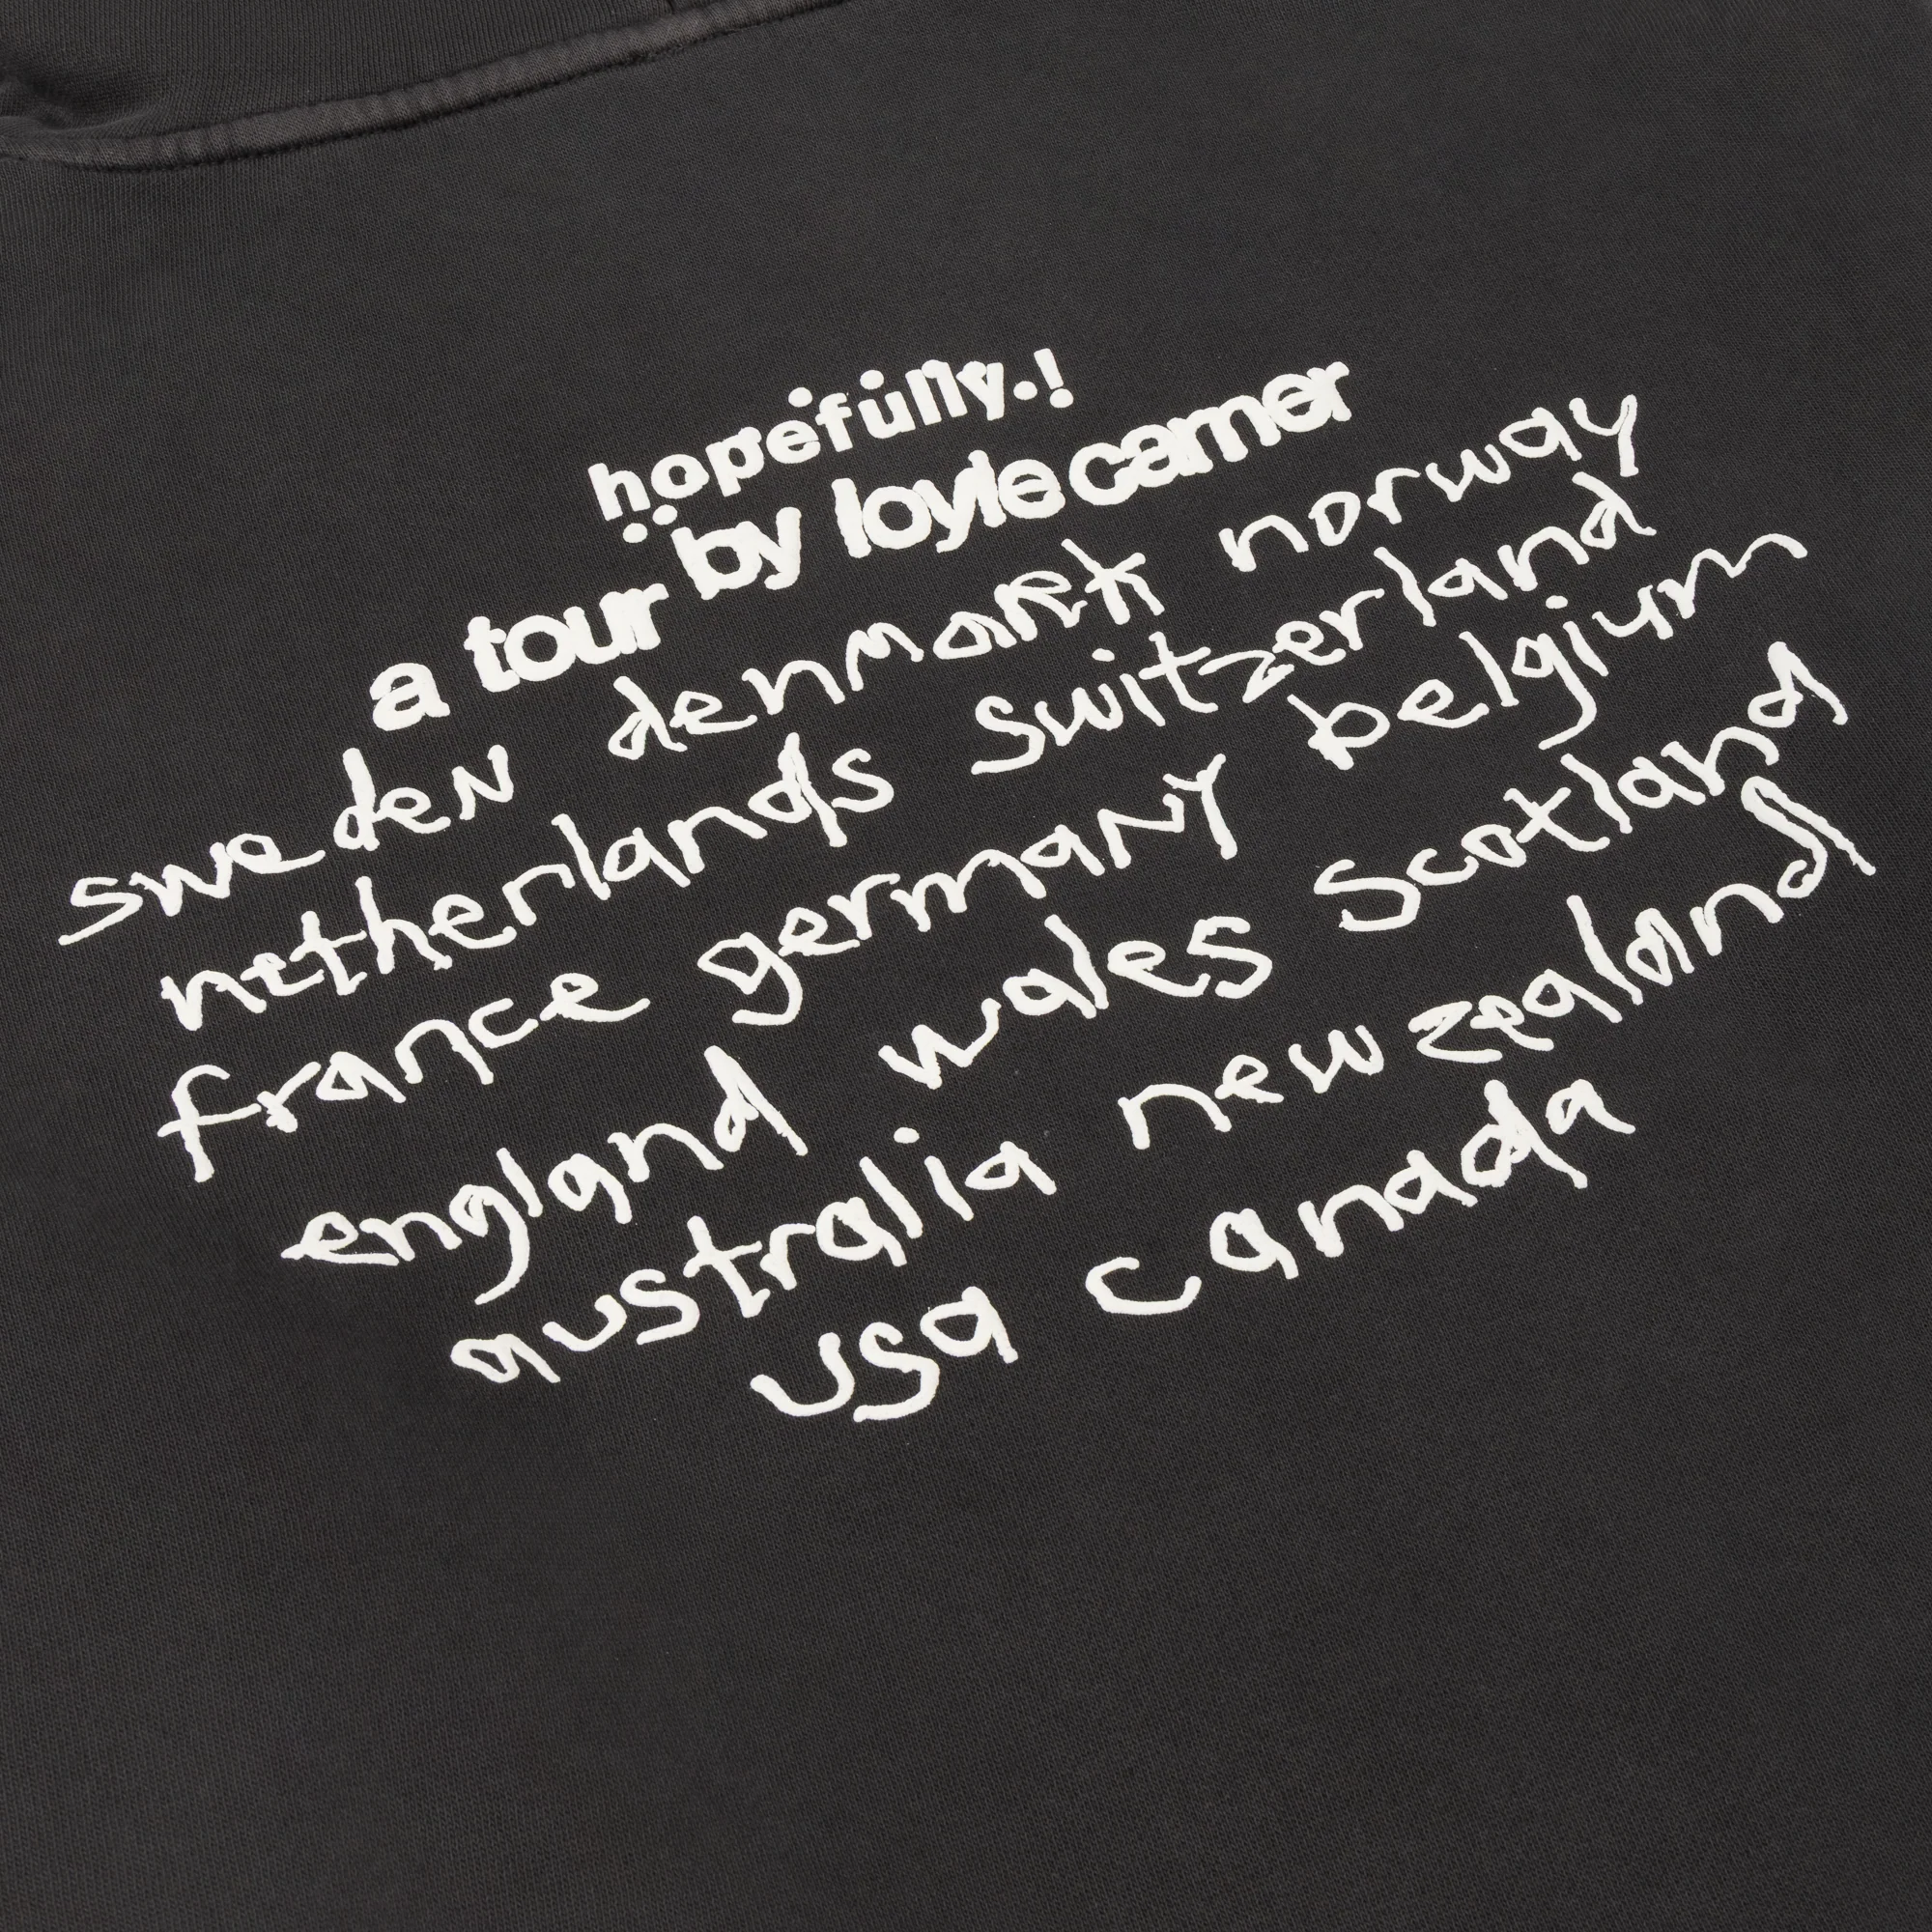 hopefully.!
a tour by loyle carner
sweden denmark norway
netherlands switzerland
france germany belgium
england wales scotland
australia new zealand
usa canada